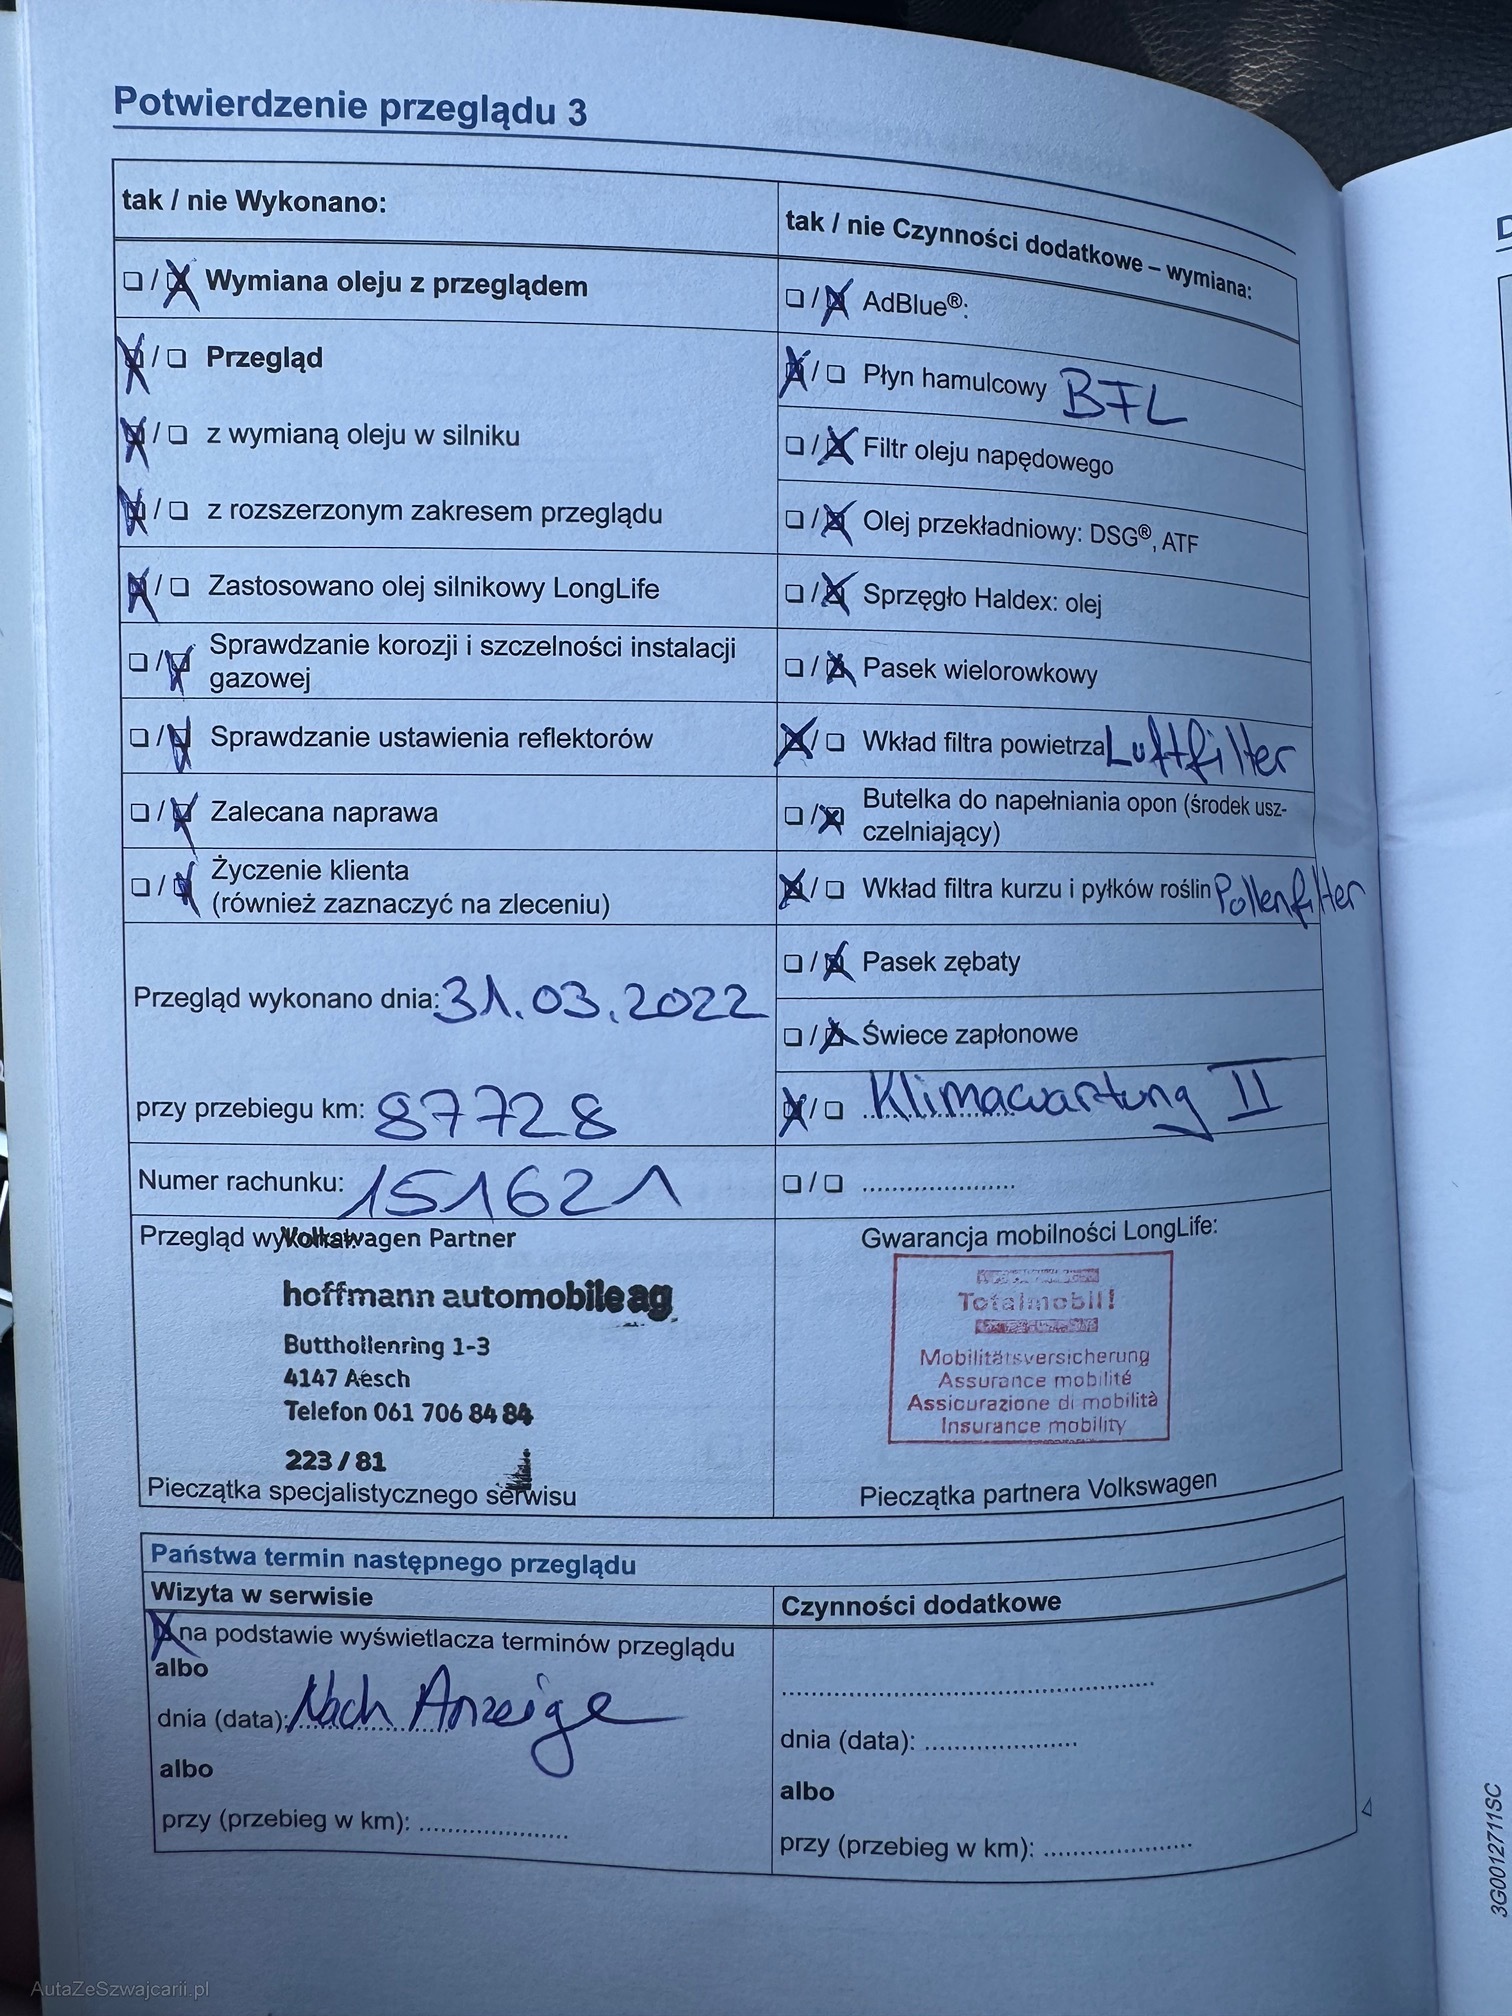 Potwierdzenie przeglądu 3
tak / nie Wykonano:
❏ / ❏ Wymiana oleju z przeglądem
❏ / ❏ Przegląd
❏ / ❏ z wymianą oleju w silniku
❏ / ❏ z rozszerzonym zakresem przeglądu
❏ / ❏ Zastosowano olej silnikowy LongLife
❏ / ❏ Sprawdzanie korozji i szczelności instalacji
gazowej
❏ / ❏ Sprawdzanie ustawienia reflektorów
❏ / ❏ Zalecana naprawa
❏ / ❏ Życzenie klienta
(również zaznaczyć na zleceniu)
Przegląd wykonano dnia: 31.03.2022
przy przebiegu km: 87728
Numer rachunku: 151621
tak / nie Czynności dodatkowe – wymiana:
❏ / ❏ AdBlue®:
❏ / ❏ Płyn hamulcowy BFL
❏ / ❏ Filtr oleju napędowego
❏ / ❏ Olej przekładniowy: DSG®, ATF
❏ / ❏ Sprzęgło Haldex: olej
❏ / ❏ Pasek wielorowkowy
❏ / ❏ Wkład filtra powietrza Luftfilter
❏ / ❏ Butelka do napełniania opon (środek usz-
czelniający)
❏ / ❏ Wkład filtra kurzu i pyłków roślin Pollenfilter
❏ / ❏ Pasek zębaty
❏ / ❏ Świece zapłonowe
❏ / ❏ Klimawartung II
❏ / ❏ ......................
Przegląd Volkswagen Partner
hoffmann automobile ag
Butthollenring 1-3
4147 Aesch
Telefon 061 706 84 84
223 / 81
Pieczątka specjalistycznego serwisu
Gwarancja mobilności LongLife:
Totalmobil!
Mobilitätsversicherung
Assurance mobilité
Assicurazione di mobilità
Insurance mobility
Pieczątka partnera Volkswagen
Państwa termin następnego przeglądu
Wizyta w serwisie
❏ na podstawie wyświetlacza terminów przeglądu
albo
dnia (data): Nach Anzeige
albo
przy (przebieg w km): ......................
Czynności dodatkowe
......................
dnia (data): ......................
albo
przy (przebieg w km): ......................
3G0012711SC
AutaZeSzwajcarii.pl